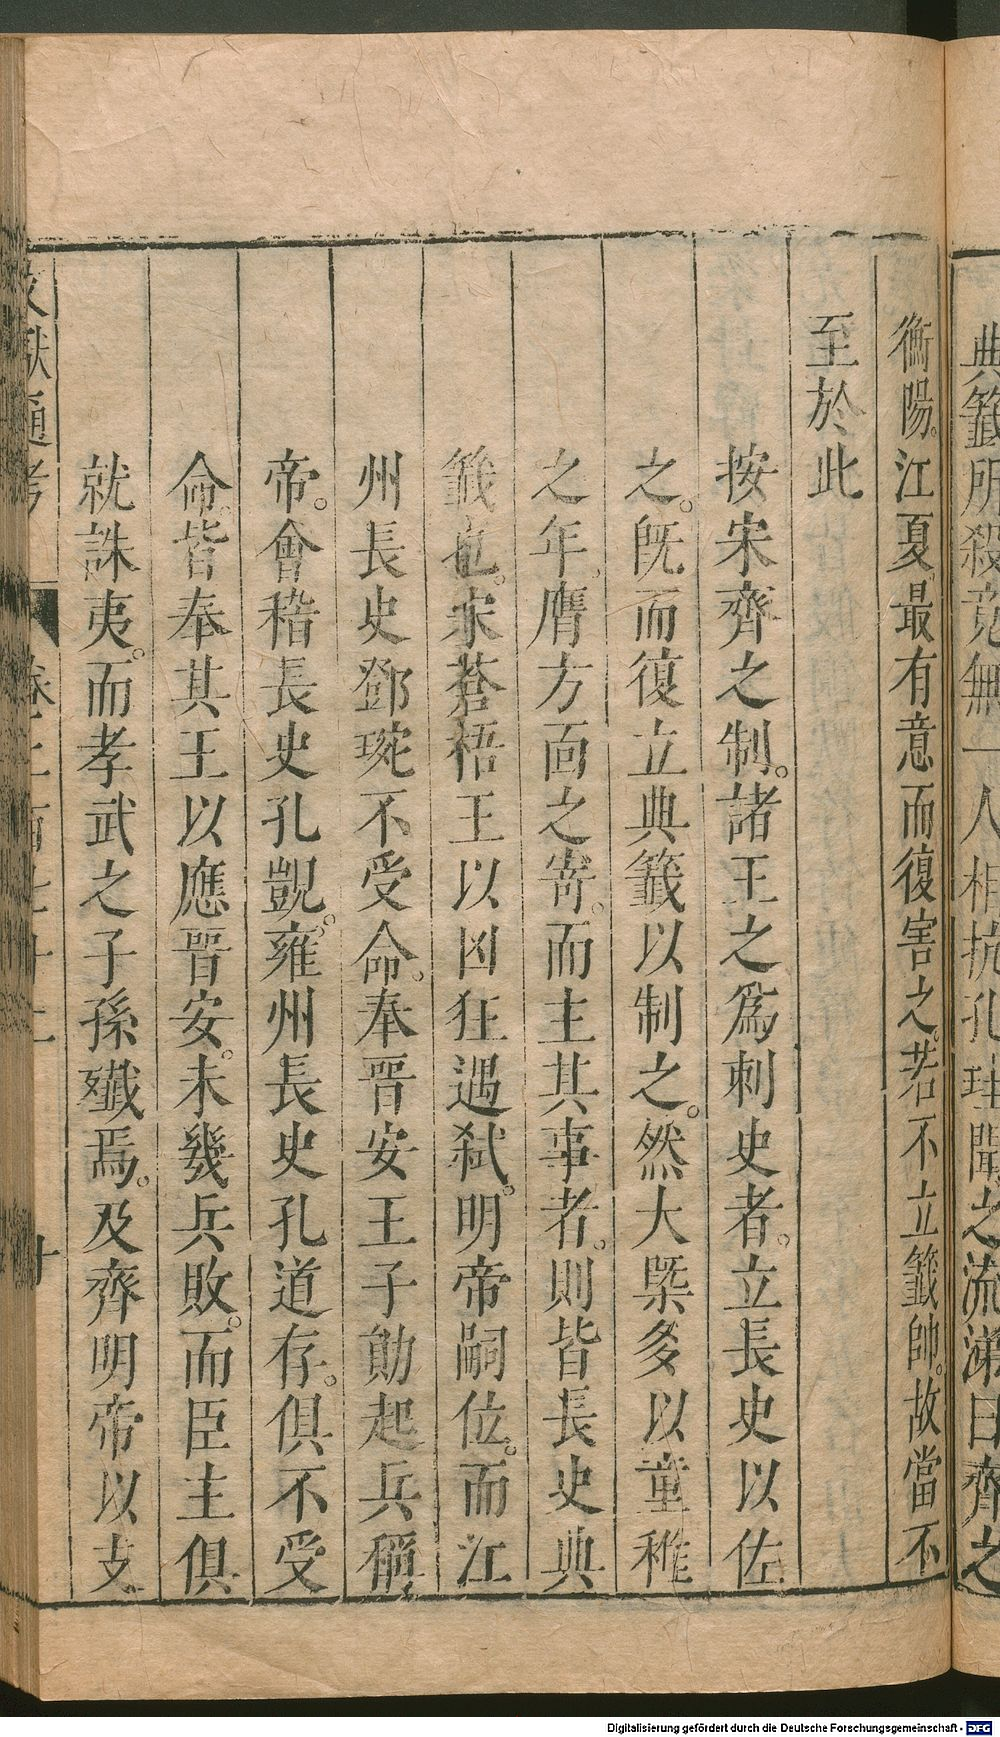 典籤所殺竟無一人相抗孔珪聞之流涕曰齊之
衡陽。江夏。最有意而復害之。若不立籤帥。故當不
至於此
按宋齊之制。諸王之爲刺史者。立長史以佐
之。旣而復立典籤以制之。然大槩多以童稚
之年。膺方面之寄。而主其事者。則皆長史典
籤也。宋蒼梧王以凶狂遇弑。明帝嗣位。而江
州長史鄧琬不受命。奉晉安王子勛起兵稱
帝。會稽長史孔覬。雍州長史孔道存。俱不受
命。皆奉其王以應晉安。未幾兵敗。而臣主俱
就誅夷。而孝武之子孫殲焉。及齊明帝以支
文獻通考 卷二百七十二 十
Digitalisierung gefördert durch die Deutsche Forschungsgemeinschaft - DFG